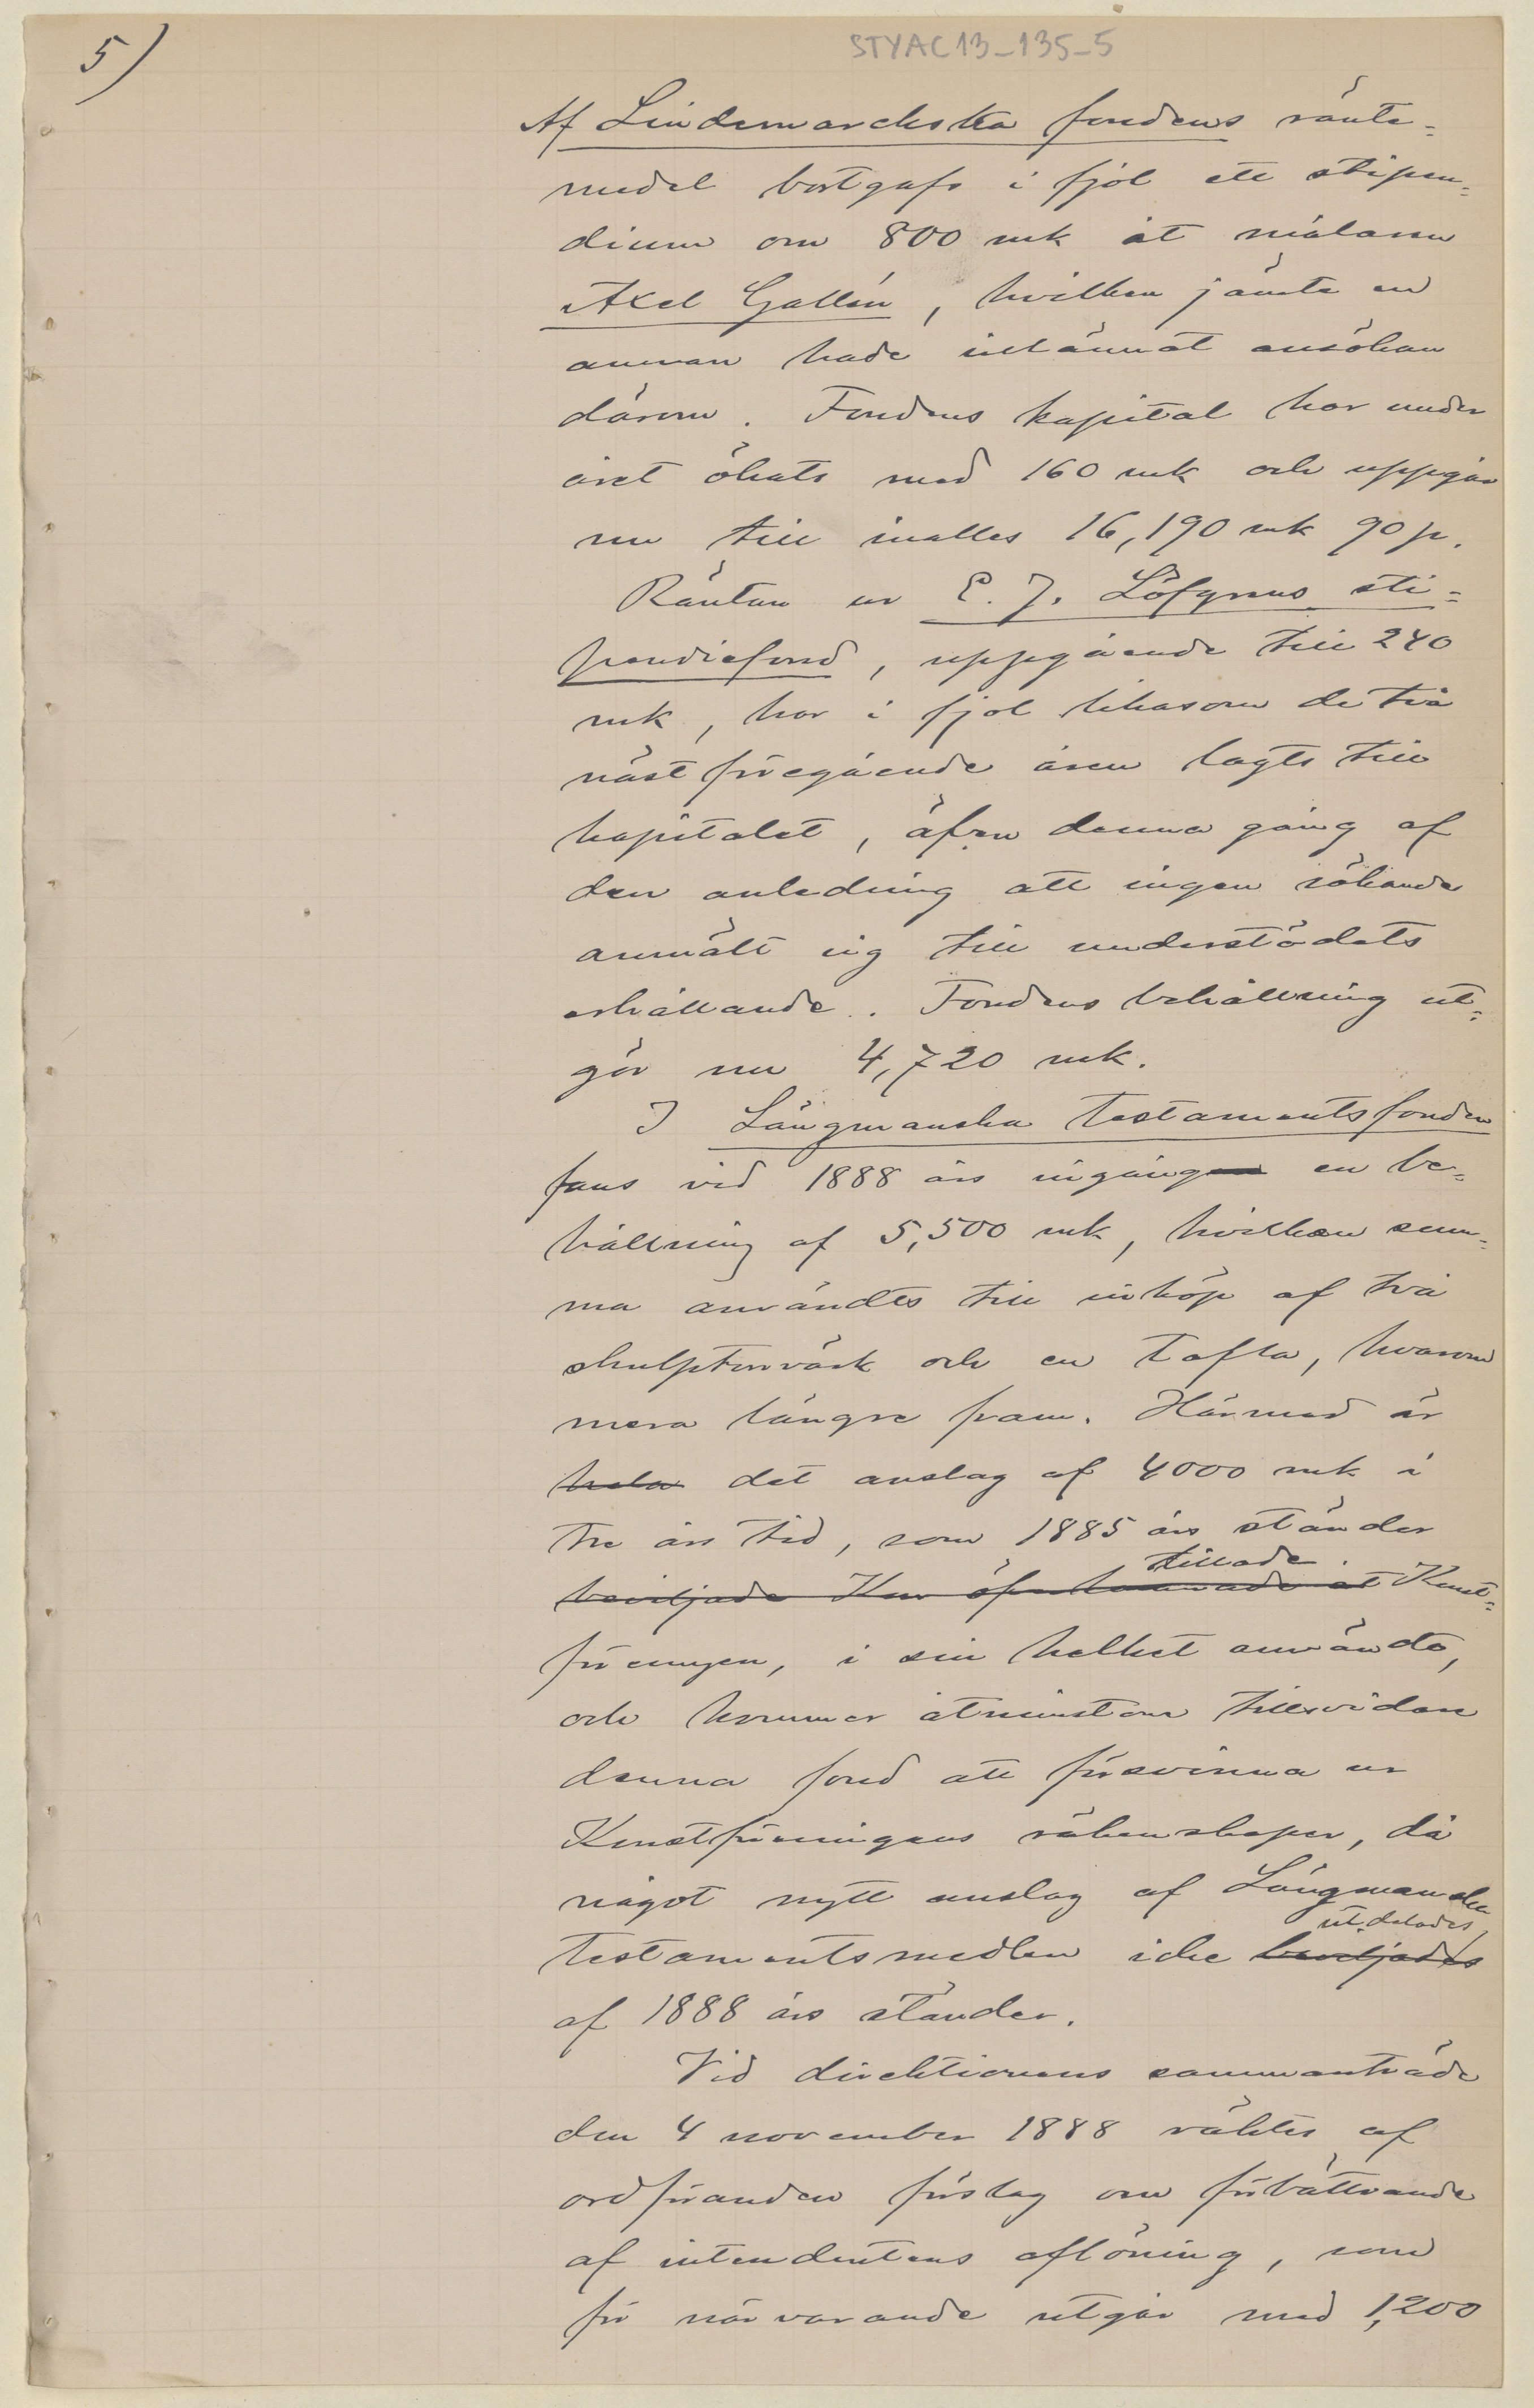 5)
STYAC13_135_5
Af Lindemarckska fondens ränte-
medel bortgafs i fjol ett stipen-
dium om 800 mk åt målaren
Axel Gallén, hvilken jämte en
annan hade inlämnat ansökan
därom. Fondens kapital har under
året ökats med 160 mk och uppgår
nu till inalles 16,190 mk 90 p.
Räntan ur E. J. Löfgrens sti-
pendiefond, uppgående till 240
mk, har i fjol likasom de två
näst föregående åren lagts till
kapitalet, äfven denna gång af
den anledning att ingen sökande
anmält sig till understödets
erhållande. Fondens behållning ut-
gör nu 4,720 mk.
I Längmanska testamentsfonden
fans vid 1888 års ingång en be-
hållning af 5,500 mk, hvilken sum-
ma användes till inköp af två
skulpturvärk och en tafla, hvarom
mera längre fram. Härmed är
hela det anslag af 4000 mk i
tre års tid, som 1885 års ständer
tillade
beviljade Kon åt Konst-
föreningen, i sin helhet användt,
och kommer åtminstone tillsvidare
denna fond att försvinna ur
Konstföreningens räkenskaper, då
något nytt anslag af Längmanska
utdelades
testamentsmedlen icke beviljades
af 1888 års ständer.
Vid direktionens sammanträde
den 4 november 1888 väktes af
ordföranden förslag om förbättrande
af intendentens aflöning, som
för närvarande utgår med 1,200